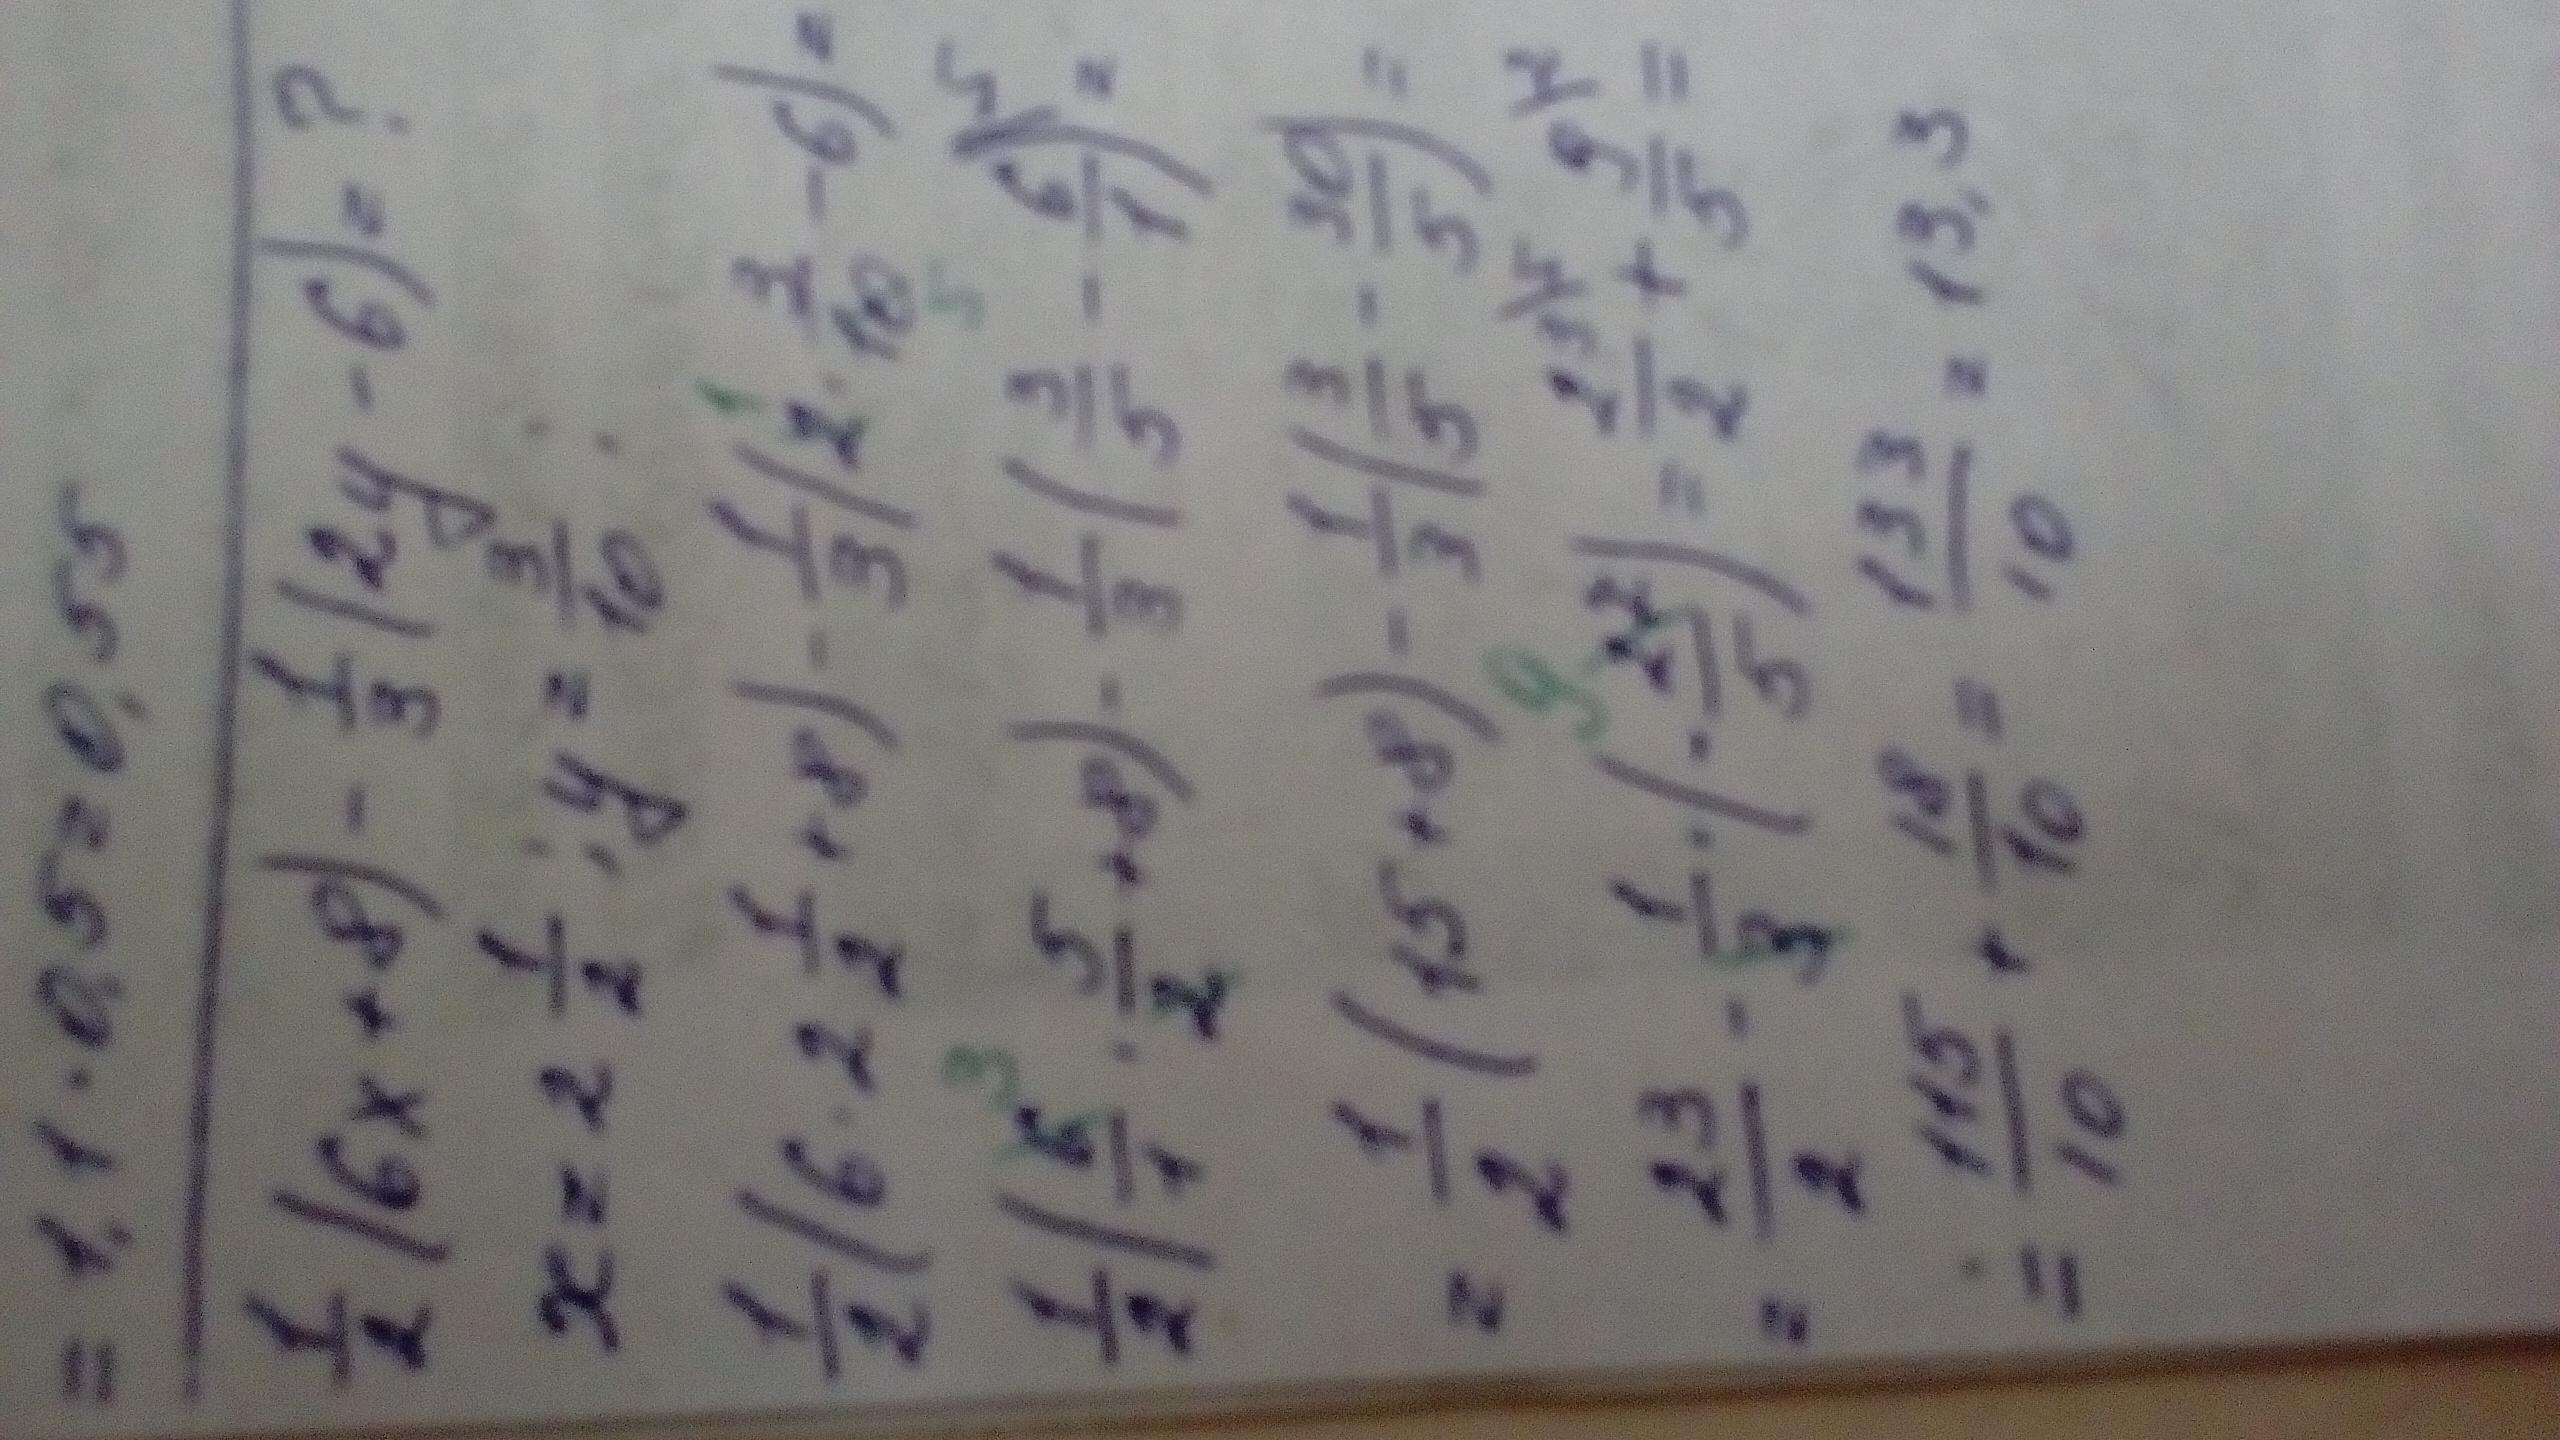 = 1,1 · 0,5 = 0,55
1/2 (6x + 8) - 1/3 (2y - 6) = ?
x = 2 1/2 ; y = 3/10 :
1/2 (6 · 2 1/2 + 8) - 1/3 (2 1 · 3/10 5 - 6) =
1/2 (6 3/1 · 5/2 + 8) - 1/3 (3/5 - 6/1 5) =
= 1/2 (15 + 8) - 1/3 (3/5 - 30/5) =
= 23/2 - 1/3 · (- 27 9/5) = 23/2 5 + 9/5 2 =
= 115/10 + 18/10 = 133/10 = 13,3